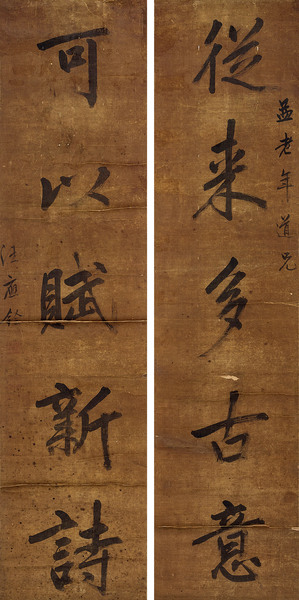 益老年道兄
從来多古意
可以賦新詩
汪應銓